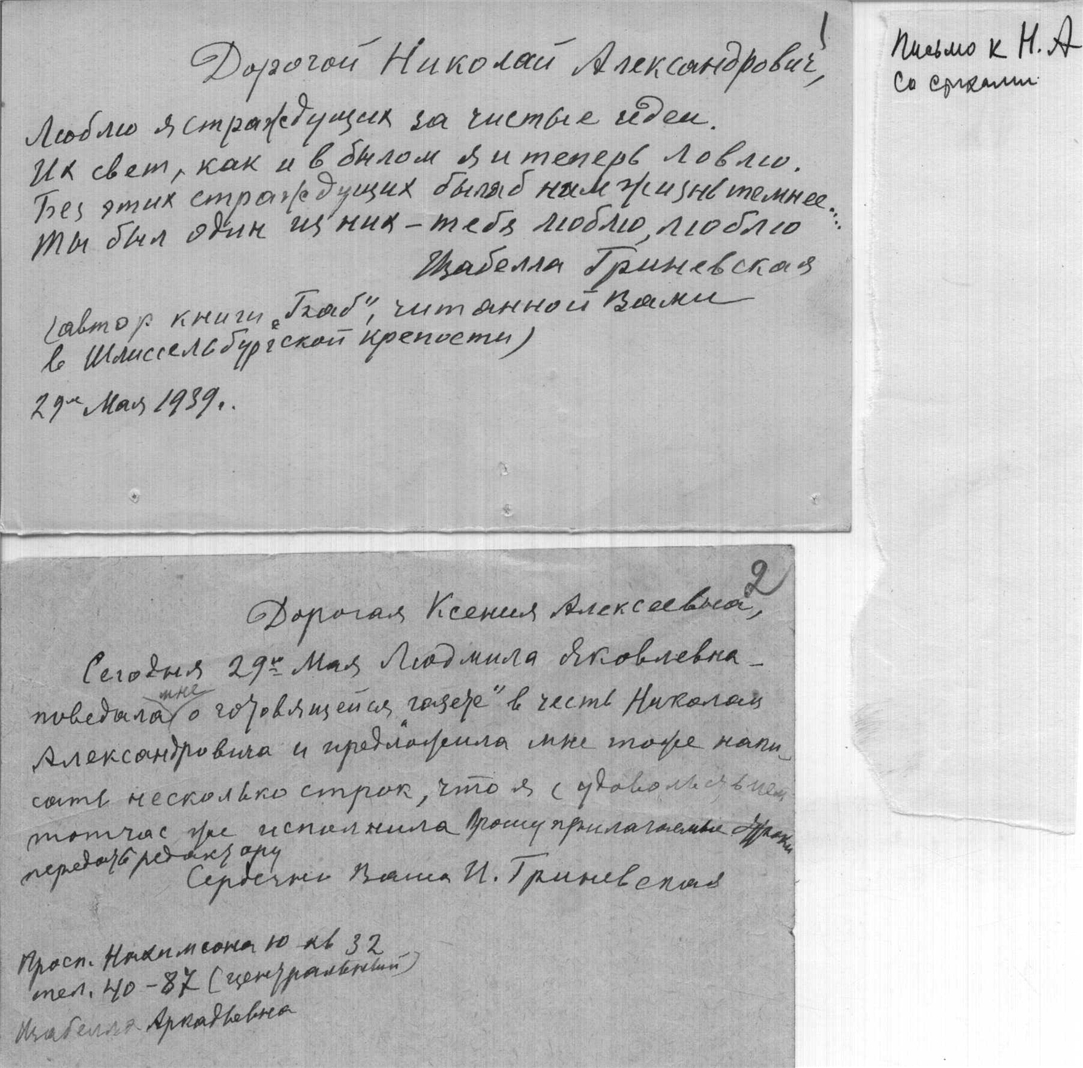 1
Дорогой Николай Александрович,
Люблю я страждущих за чистые идеи.
Их свет, как и в былом я и теперь ловлю.
Без этих страждущих была б нам жизнь темнее...
Ты был один из них – тебя люблю, люблю
Изабелла Гриневская
(автор книги „Баб", читанной Вами
в Шлиссельбургской крепости)
29го Мая 1939 г.
Письмо к Н. А
со строками
2
Дорогая Ксения Алексеевна,
Сегодня 29го Мая Людмила Яковлевна –
поведала мне о готовящейся „газете" в честь Николая
Александровича и предложила мне тоже напи-
сать несколько строк, что я с удовольствием
тотчас же исполнила Прошу прилагаемые строки
передать редактору
Сердечно Ваша И. Гриневская
Просп. Нахимсона 10 кв 32
тел. 40-87 (центральный)
Изабелла Аркадьевна